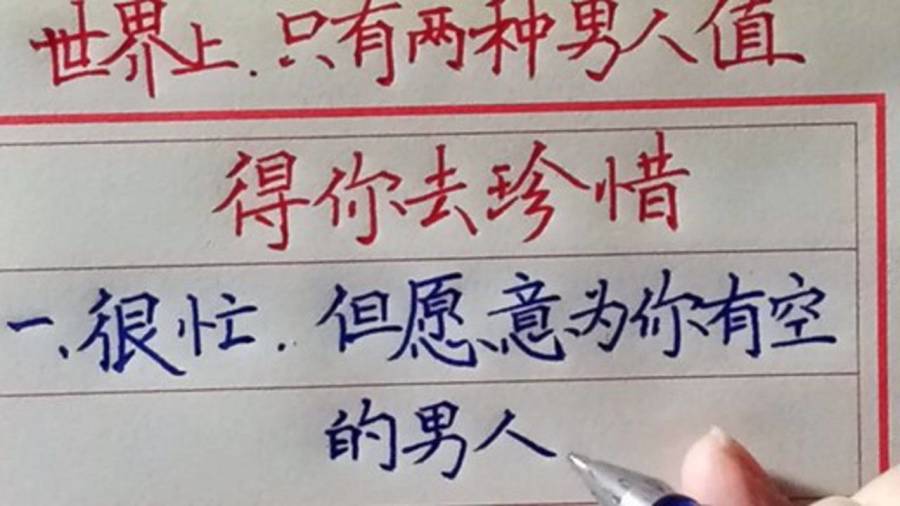 世界上.只有两种男人值
得你去珍惜
一、很忙.但愿意为你有空
的男人